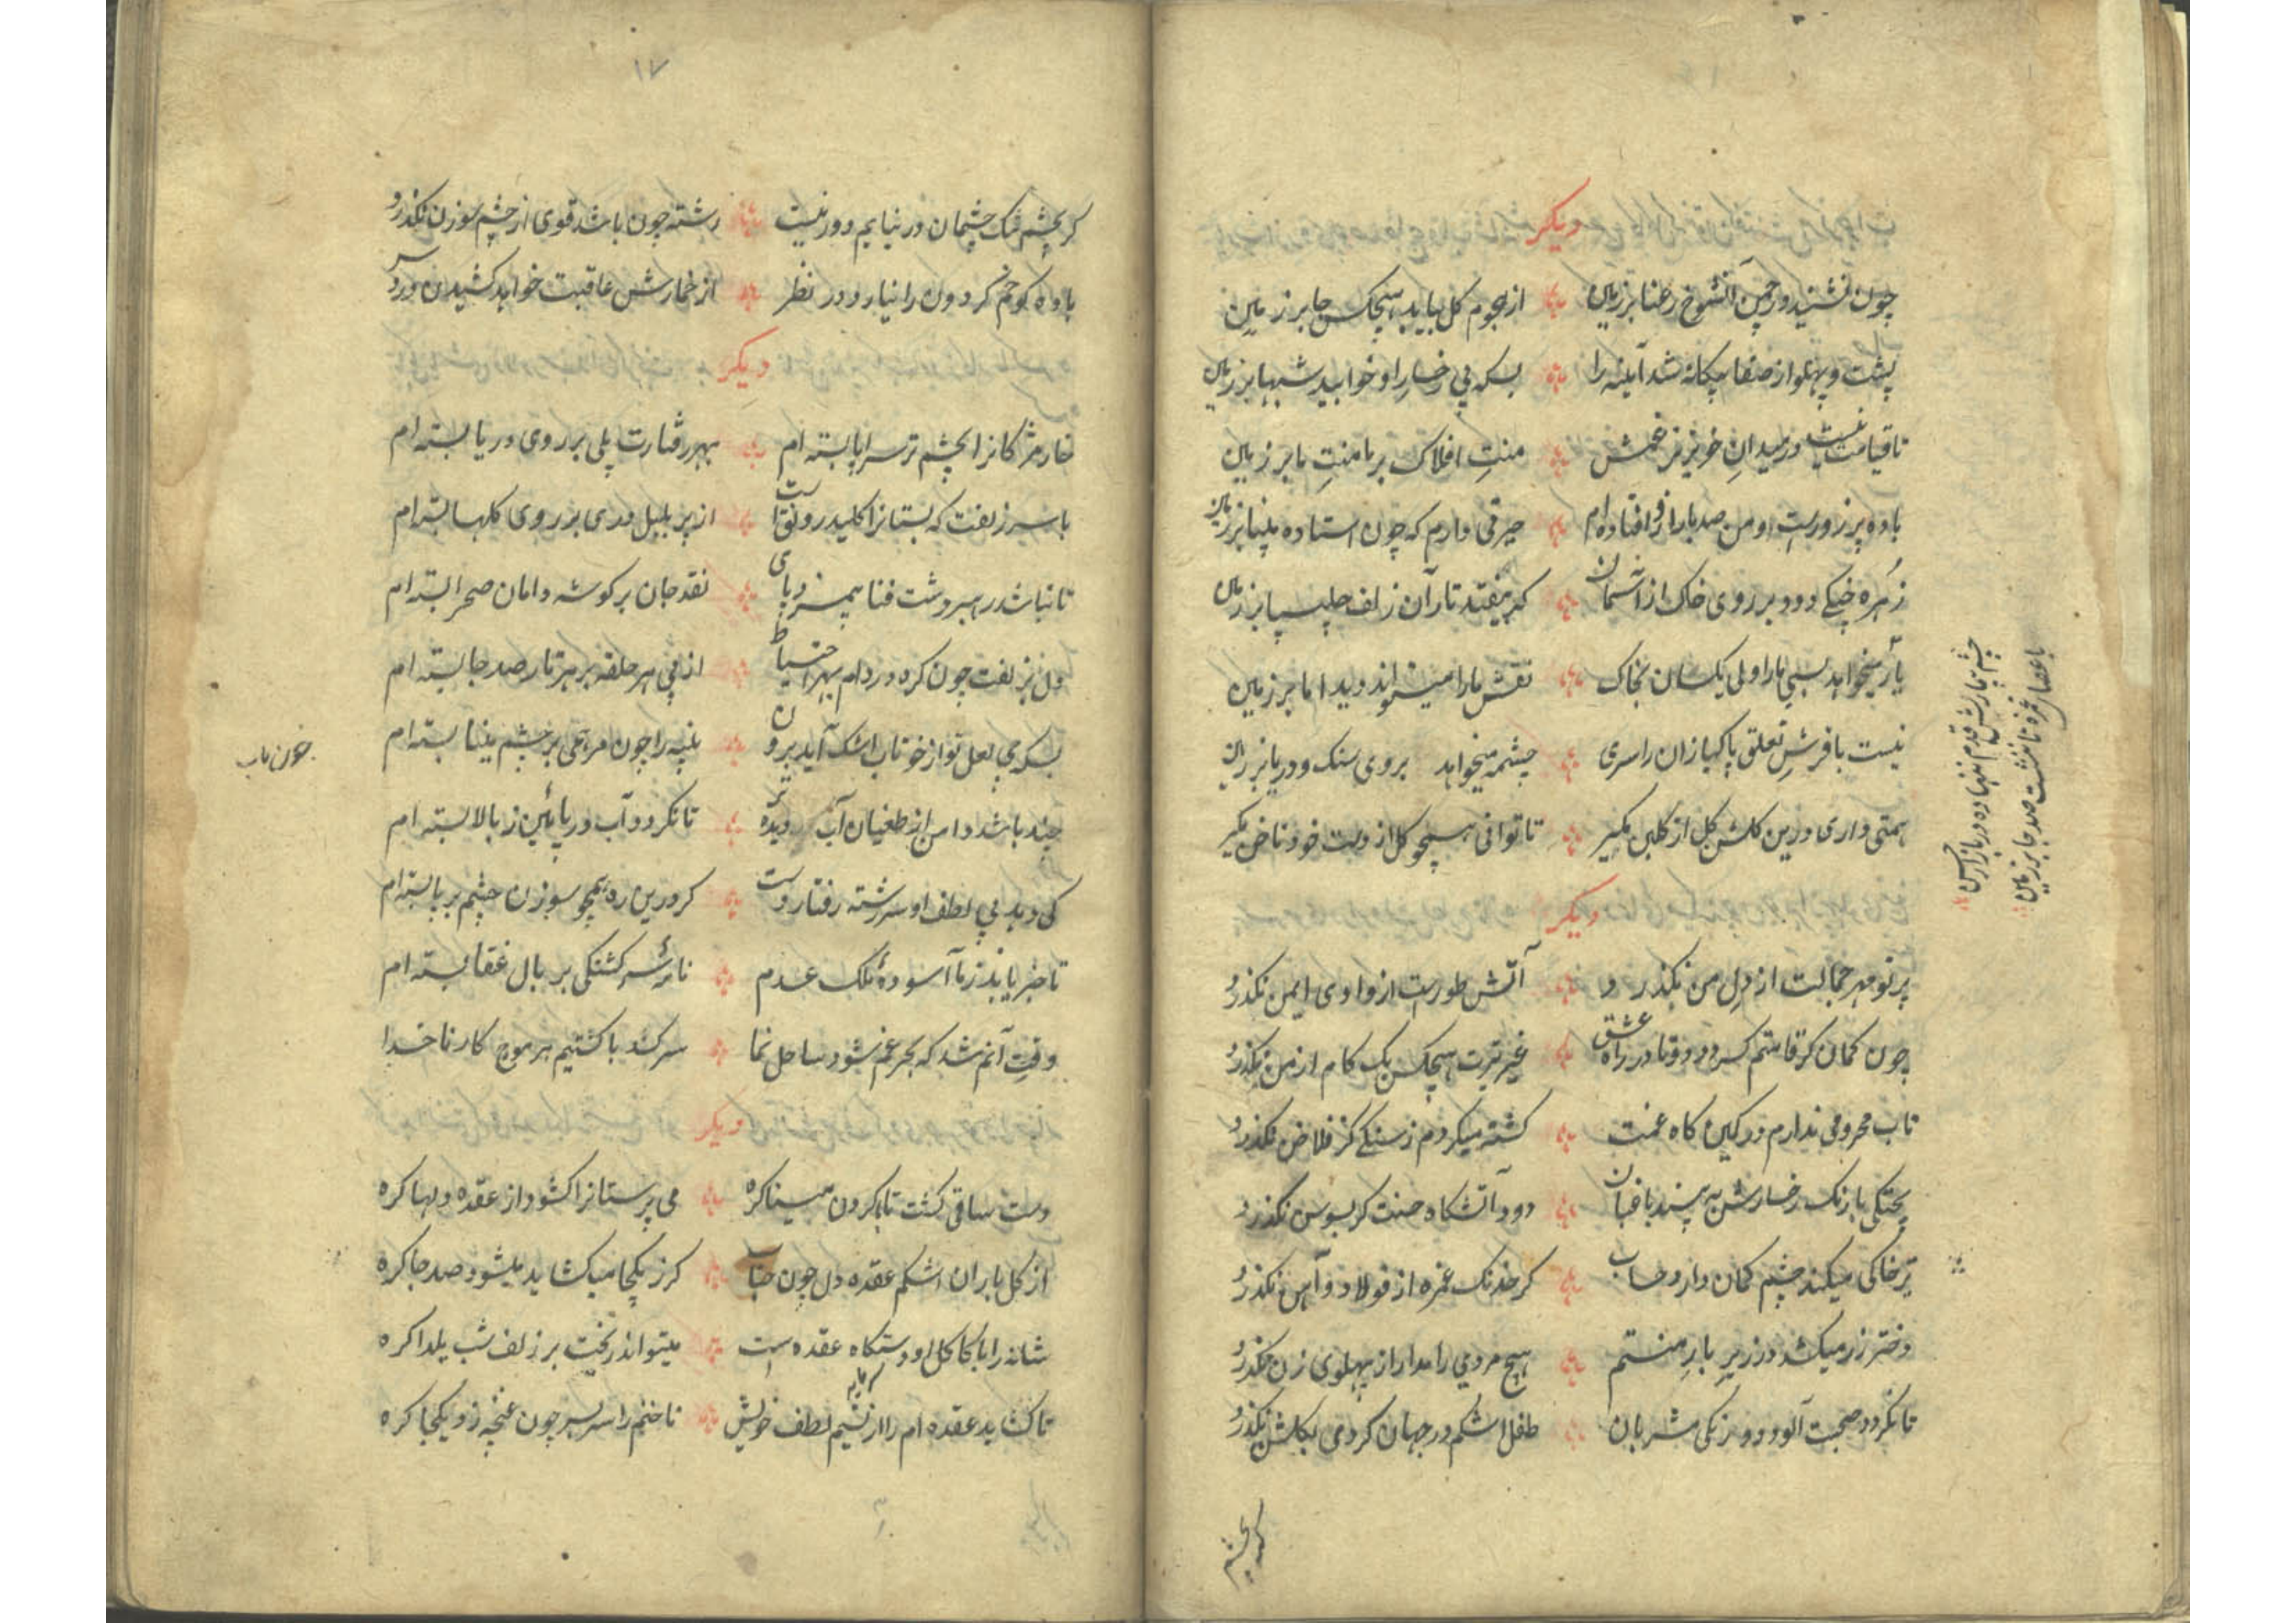 دیکر
چون نشیند در چمن آنشوخ رعنا بر زمین ؞ از هجوم کل نیابد هیچکس جا بر زمین
پشت و پهلو از صفا یکانه شد آینه را ؞ بسکه بی رخسار او خوابید شبها بر زمین
تا قیامت نیست در میدان خونریز غمش ؞ منتِ افلاک بر ما منتِ ما بر زمین
باده پر زورست و من صد بار از افتاده‌ام ؞ حیرتی دارم که چون استاده مینا بر زمین
زهره خنکی دود بر روی خاک از آسمان ؞ کر بیفتد تار آن زلف چلیپا بر زمین
یار میخواهد بسی ما را ولی یکسان بخاک ؞ نقش ما را میتواند دید اما بر زمین
نیست با فرشِ تعلق پاکبازان را سری ؞ چشمه میخواهد بروی سنک و دریا بر زمین
همتی داری درین کلشن کل از کلبن مکیر ؞ تا توانی همچو کل از دست خود ناخن مکیر
دیکر
پرتو مهر جمالت از دل من نکذرد ؞ آتش طورست از وادی ایمن نکذرد
چون کمان کر قامتم کردد دوتا در راه عشق ؞ غیر تیرت هیچکس یک کام از من نکذرد
تاب محرومی ندارم در کمین کاه غمت ؞ کشته میکردم ز سنکی کز فلاخن نکذرد
پختکی با رنک رخسارش به پسند باغبان ؞ دود آتشکاه حسنت کر بسوسن نکذرد
تیر خاکی میکند چشم کمان دار و حساب ؞ کر خدنک غمزه از فولاد و آهن نکذرد
دختر زر میکشد در زیر بارِ منتم ؞ هیچ مردمی را مدار از پهلوی زن نکذرد
تا نکردد صحبت آلوده دو رنکی مشربان ؞ طفل اشکم در جهان کردمی بکلشن نکذرد
کر بچشم
چشم بیمارش قدم ننهاده در بازار حسن
با عصای غمزه تا ننشست صد جا بر زمین
۱۷
کر بچشم تنک چشمان در نیایم دور نیست ؞ رشته چون باشد قوی از چشم سوزن نکذرد
باده کو خم کردون را نیارد در نظر ؞ از خمارش عاقبت خواهد کشیدن درد سر
دیکر
خار مژکانرا بچشم تر سراپا بسته‌ام ؞ بهر رفتارت پلی بر روی دریا بسته‌ام
با سر زلفت که بستانرا کلید رونق است ؞ از پر بلبل دری بر روی کلها بسته‌ام
تا نباشد رهبر دشت فنا بیمزد پای ؞ نقد جان بر کوشه دامان صحرا بسته‌ام
دل بزلفت چون کره در دام بهر احتیاط ؞ از پی هر حلقه بر هر تار صد جا بسته‌ام
بسکه می بی لعل تو از خوناب اشک آید برون ؞ پنبه را چون مرهمی بر چشم مینا بسته‌ام
چند باشد دامن از طغیان آب دیده تر ؞ تا نکردد آب دریا پائین ز بالا بسته‌ام
کی دهد بی لطف او سررشته رفتار دست ؞ کر درین ره همچو سوزن چشم بر پا بسته‌ام
تا خبر یابند ز ما آسودهٔ ملک عدم ؞ نامهٔ سرکشتکی بر بال عنقا بسته‌ام
وقت آنم شد که بحر غم شود ساحل نما ؞ سر کند با کشتیم هر موج کار ناخدا
دیکر
دست ساقی کشت تا بکردن مینا کره ؞ می پرستانرا کشود از عقده دلها کره
از کل باران اشکم عقده دل چون حباب ؞ کر ز یکجا میکشاید میشود صد جا کره
شانه را با کاکل او دستکاه عقده است ؞ میتواند ریخت بر زلف شب یلدا کره
تا کشاید عقده‌ام را از نسیم لطف خویش ؞ ناخنم را سر بسر چون غنچه زد یکجا کره
خون ناب